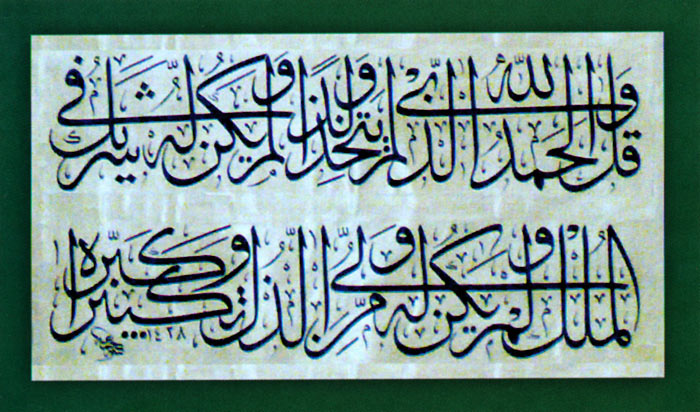 وقل الحمد لله الذي لم يتخذ ولدا ولم يكن له شريك في
الملك ولم يكن له ولي من الذل وكبره تكبيرا
١٤٢٨